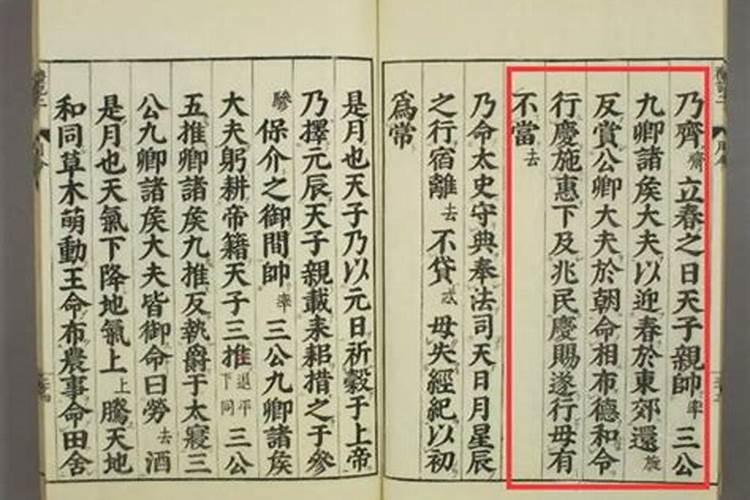 乃齊齋立春之日天子親帥率三公
九卿諸矦大夫以迎春於東郊還旋
反賞公卿大夫於朝命相布德和令
行慶施惠下及兆民慶賜遂行毋有
不當去
乃命太史守典奉法司天日月星辰
之行宿離去不貸忒毋失經紀以初
爲常
是月也天子乃以元日祈穀于上帝
乃擇元辰天子親載耒耜措之于參
驂保介之御間帥率三公九卿諸矦
大夫躬耕帝籍天子三推退平下同三公
五推卿諸矦九推反執爵于太寢三
公九卿諸矦大夫皆御命曰勞去酒
是月也天氣下降地氣上上騰天地
和同草木萌動王命布農事命田舍